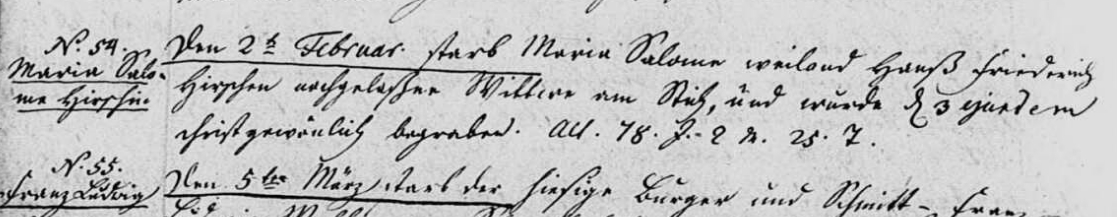 N. 54.
Maria Salo-
me Hirschin.
Den 2t Februar. starb Maria Salome weiland Hanß Friederich
Hirschen nachgelaßene Wittwe am Stich, und wurde d 3 ejusdem
christgewönlich begraben. Alt. 78. J. 2 M. 25. T.
N. 55.
Franz Ludwig
Den 5ten März starb der hiesige Burger und Schmitt- Franz